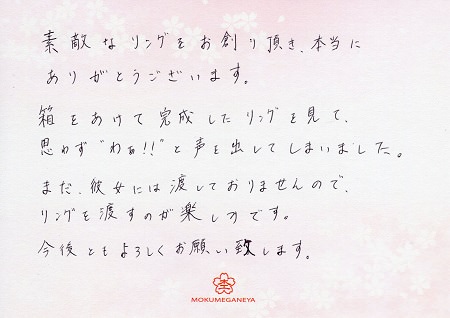 素敵なリングをお創り頂き、本当に
ありがとうございます。
箱をあけて完成したリングを見て、
思わず"わぁ!!"と声を出してしまいました。
まだ、彼女には渡しておりませんので、
リングを渡すのが楽しみです。
今後ともよろしくお願い致します。
MOKUMEGANEYA